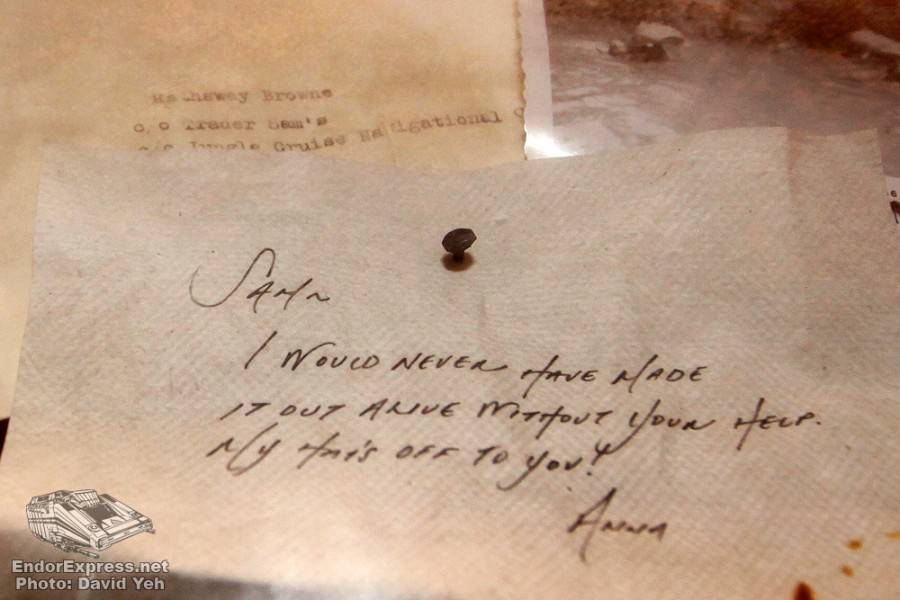 Hathaway Browne
c/o Trader Sam's
c/o Jungle Cruise Navigational
Sam
I WOULD NEVER HAVE MADE
IT OUT ALIVE WITHOUT YOUR HELP.
MY HAT'S OFF TO YOU!
ANNA
EndorExpress.net
Photo: David Yeh